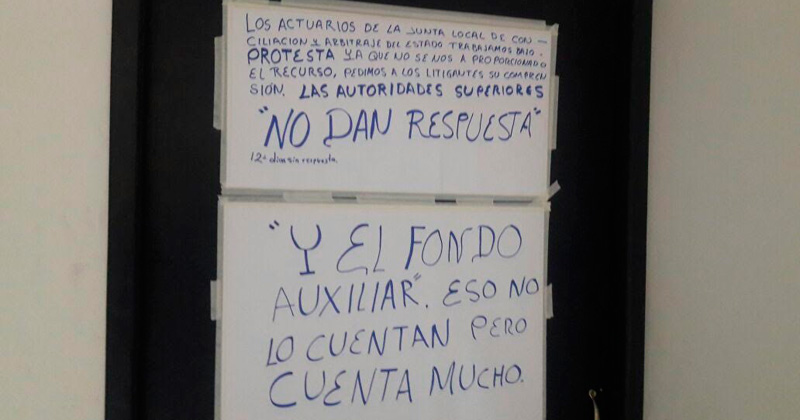 LOS ACTUARIOS DE LA JUNTA LOCAL DE CON -
CILIACION Y ARBITRAJE DEL ESTADO TRABAJAMOS BAJO -
PROTESTA YA QUE NO SE NOS A PROPORCIONADO
EL RECURSO, PEDIMOS A LOS LITIGANTES SU COMPREN
SIÓN. LAS AUTORIDADES SUPERIORES
"NO DAN RESPUESTA"
12+ dias sin respuesta.
"Y EL FONDO
AUXILIAR". ESO NO
LO CUENTAN PERO
CUENTA MUCHO.